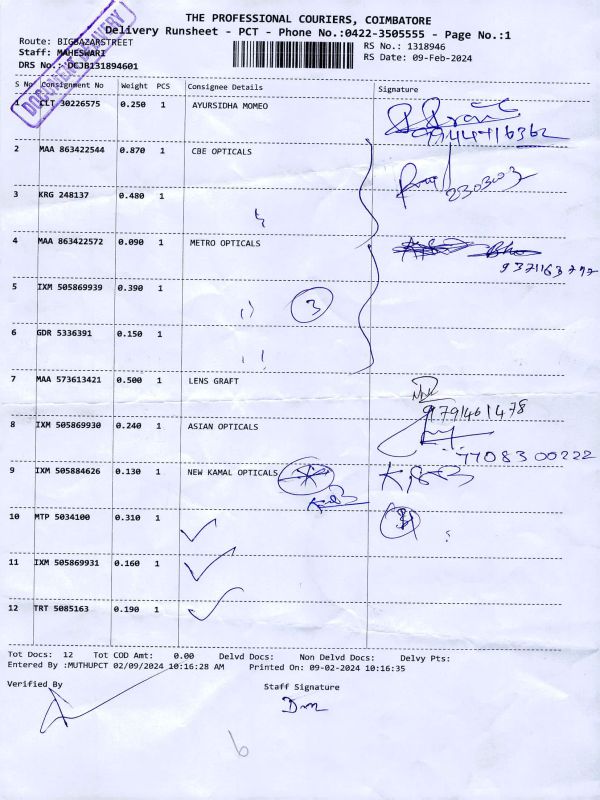 THE PROFESSIONAL COURIERS, COIMBATORE
Delivery Runsheet - PCT - Phone No.:0422-3505555 - Page No.:1
Route: BIGBAZARSTREET
RS No.: 1318946
Staff: MAHESWARI
RS Date: 09-Feb-2024
DRS No.: DCJB131894601
DOCUMENT DELIVERY
S No Consignment No Weight PCS Consignee Details Signature
1 CLT 30226575 0.250 1 AYURSIDHA MOMEO
9944416362
2 MAA 863422544 0.870 1 CBE OPTICALS
2303003
3 KRG 248137 0.480 1
4 MAA 863422572 0.090 1 METRO OPTICALS
5 IXM 505869939 0.390 1
3
6 GDR 5336391 0.150 1
7 MAA 573613421 0.500 1 LENS GRAFT
9791461478
8 IXM 505869930 0.240 1 ASIAN OPTICALS
7708300222
9 IXM 505884626 0.130 1 NEW KAMAL OPTICALS
10 MTP 5034100 0.310 1
11 IXM 505869931 0.160 1
12 TRT 5085163 0.190 1
Tot Docs: 12 Tot COD Amt: 0.00 Delvd Docs: Non Delvd Docs: Delvy Pts:
Entered By :MUTHUPCT 02/09/2024 10:16:28 AM Printed On: 09-02-2024 10:16:35
Verified By
Staff Signature
6